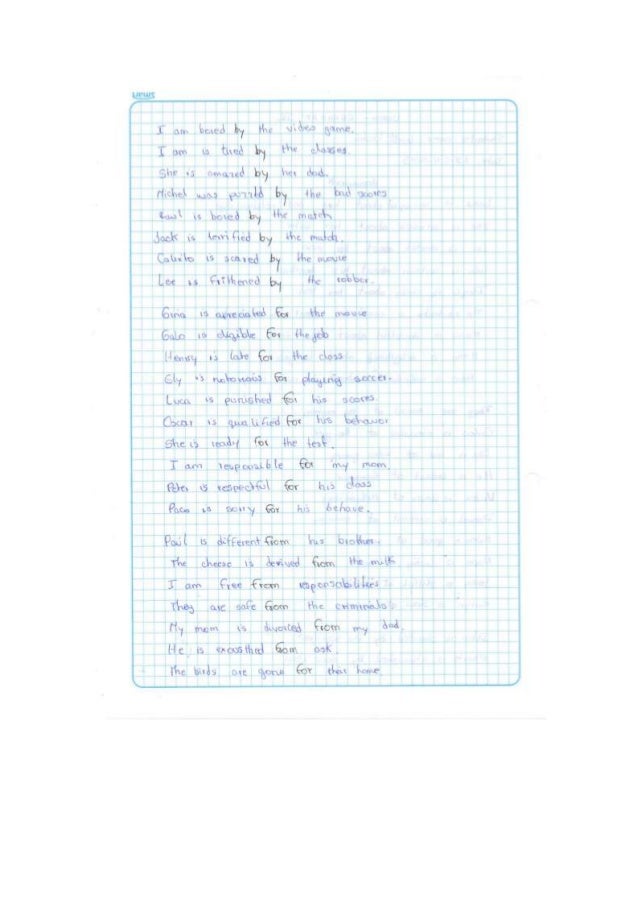 I am bored by the video game.
I am is tired by the classes.
She is amazed by her dad.
Michel was puzzld by the bad scores
is bored by the match
Jack is terrified by the match.
Calixto is scared by the movie
Lee is frithened by the robber.
Gina is apreciated for the movie
Galo is eligible for the job
Henrry is late for the class
Ely is notorious for playing sorcer.
Luca is punished for his scores
Oscar is qualified for his behavor
She is ready for the test.
I am responsible for my mom.
Peter is respectful for his class
Paco is sorry for his behave.
Paul is different from his brother.
The cheese is derived from the milk
I am free from
They are safe from the criminals
My mom is divorted from my dad.
He is from ask.
The birds are gone for their home